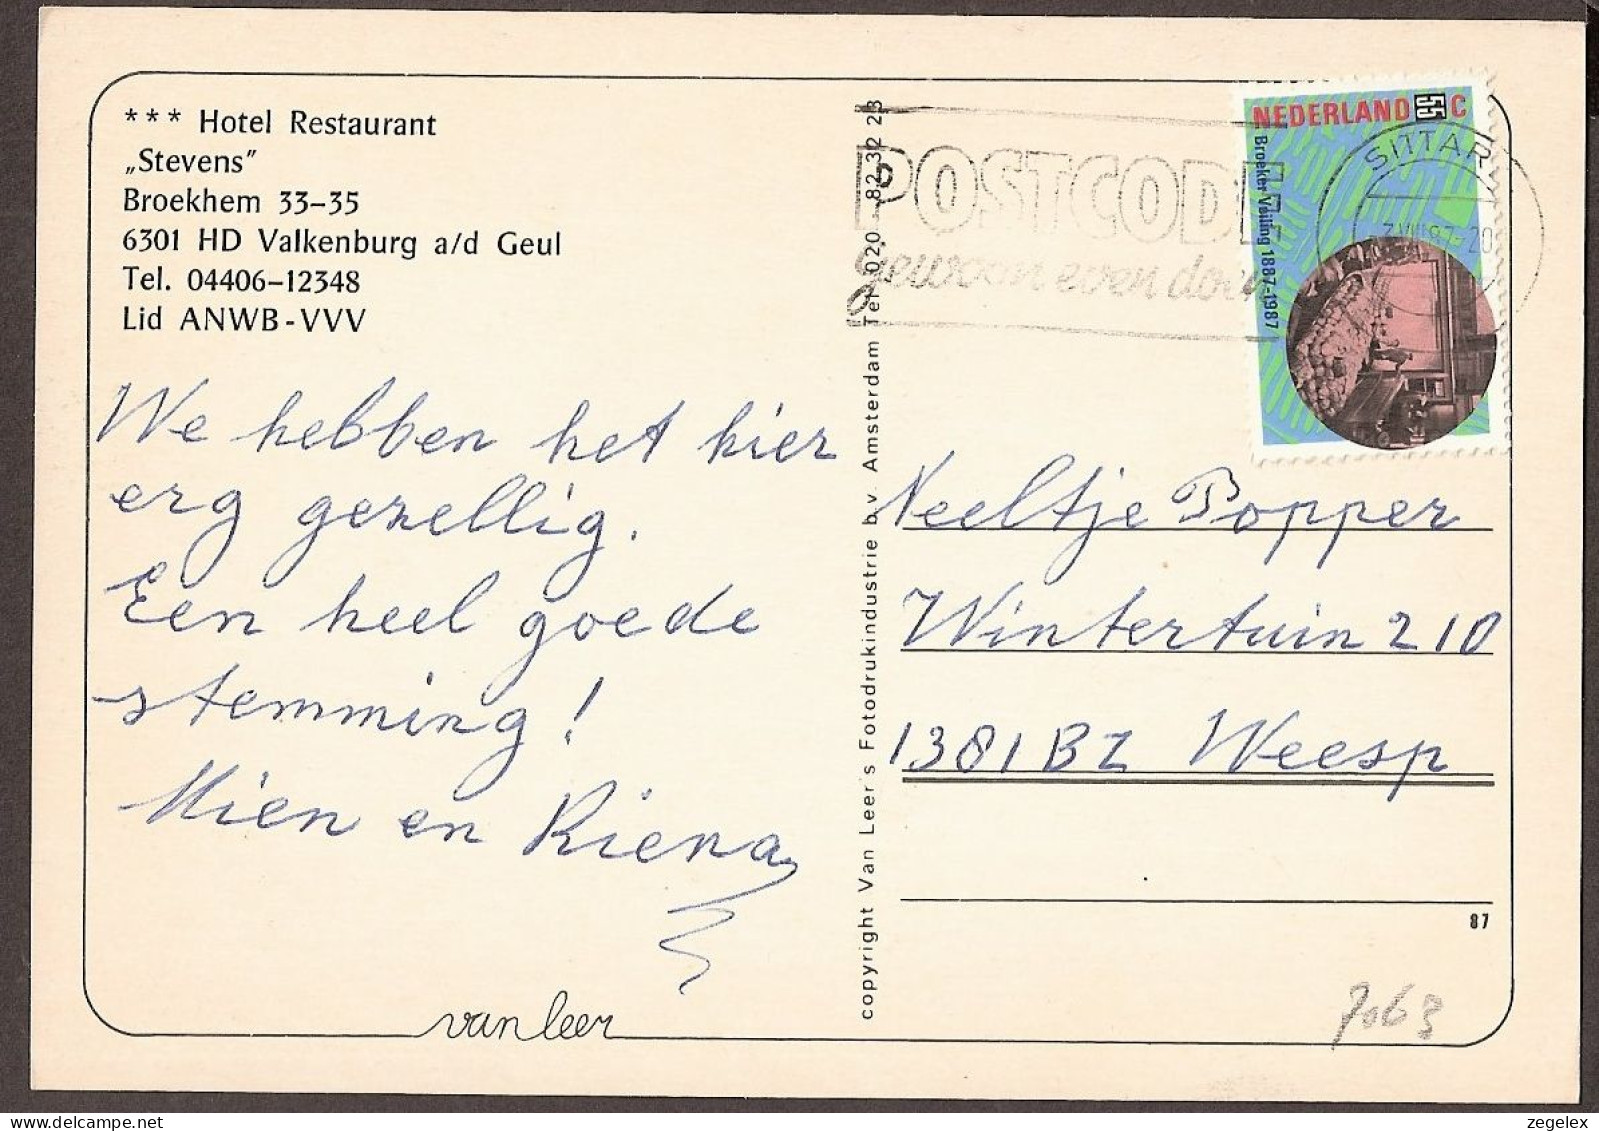 *** Hotel Restaurant
„Stevens”
Broekhem 33-35
6301 HD Valkenburg a/d Geul
Tel. 04406-12348
Lid ANWB-VVV
We hebben het hier
erg gezellig.
Een heel goede
stemming!
Mien en Riena
van leer
copyright Van Leer's Fotodrukindustrie b.v. Amsterdam Tel. 020 - 82 32 23
POSTCODE
gewoon even doen
NEDERLAND 55 C
Broeker Veiling 1887-1987
SITTARD
Neeltje Popper
Wintertuin 210
1381 BZ Weesp
87
7063
zegelex